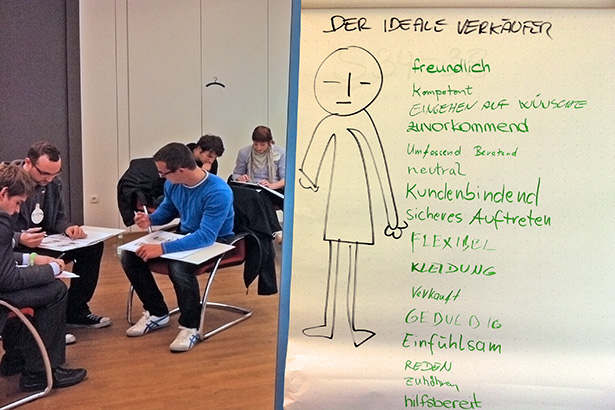 DER IDEALE VERKÄUFER
freundlich
Kompetent
EINGEHEN AUF WÜNSCHE
zuvorkommend
Umfassend Beratend
neutral
Kundenbindend
sicheres Auftreten
FLEXIBEL
KLEIDUNG
Verkauft
GEDULDIG
Einfühlsam
REDEN
zuhören
hilfsbereit